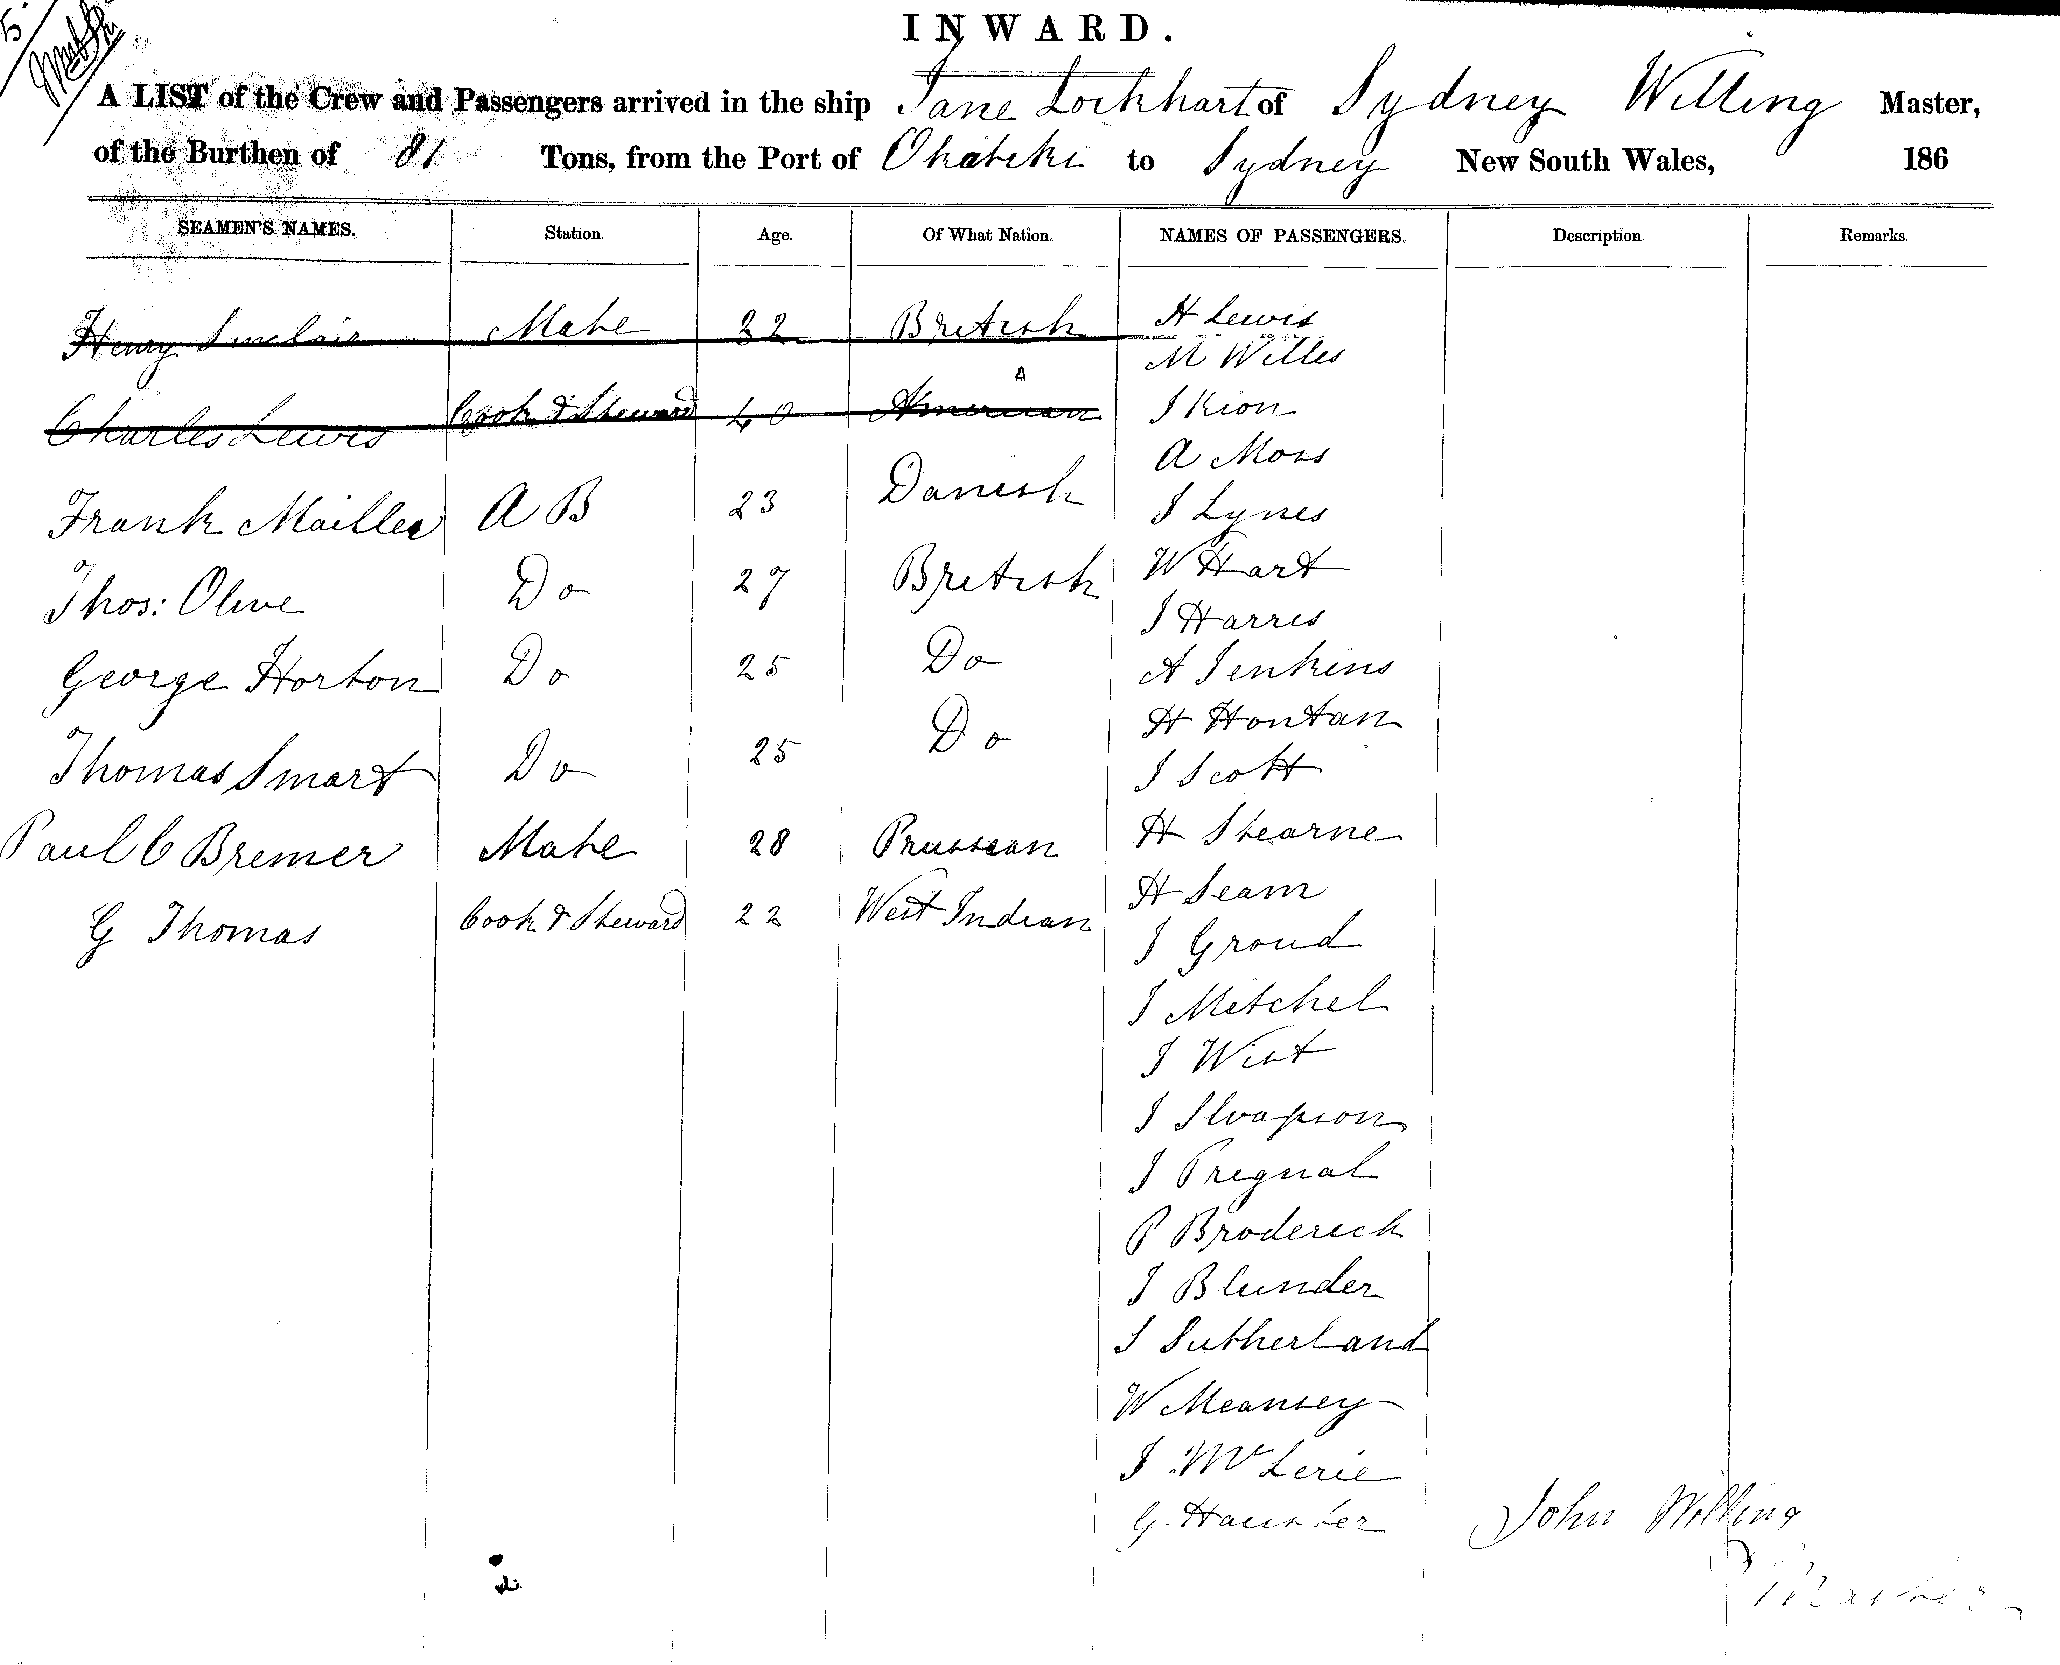 INWARD.
A LIST of the Crew and Passengers arrived in the ship Jane Lockhart of Sydney Willing Master,
of the Burthen of 81 Tons, from the Port of Okatiki to Sydney New South Wales, 186
SEAMEN'S NAMES. Station. Age. Of What Nation. NAMES OF PASSENGERS. Description. Remarks.
Henry Sinclair Mate 32 British H Lewis
M Willes
Charles Lewis Cook & Steward 40 American J Kion
A Moss
Frank Mailler A B 23 Danish J Lynes
Thos: Olive Do 27 British W Hart
J Harris
George Horton Do 25 Do A Jenkins
H Hontan
Thomas Smart Do 25 Do J Scott
Paul C Bremer Mate 28 Prussian H Stearne
H Seam
G Thomas Cook & Steward 22 West Indian J Groud
J Mitchel
J West
J
J Pregnal
P Broderick
J Blunder
S Sutherland
W Meansey
J McLerie
G. John Willing
Master